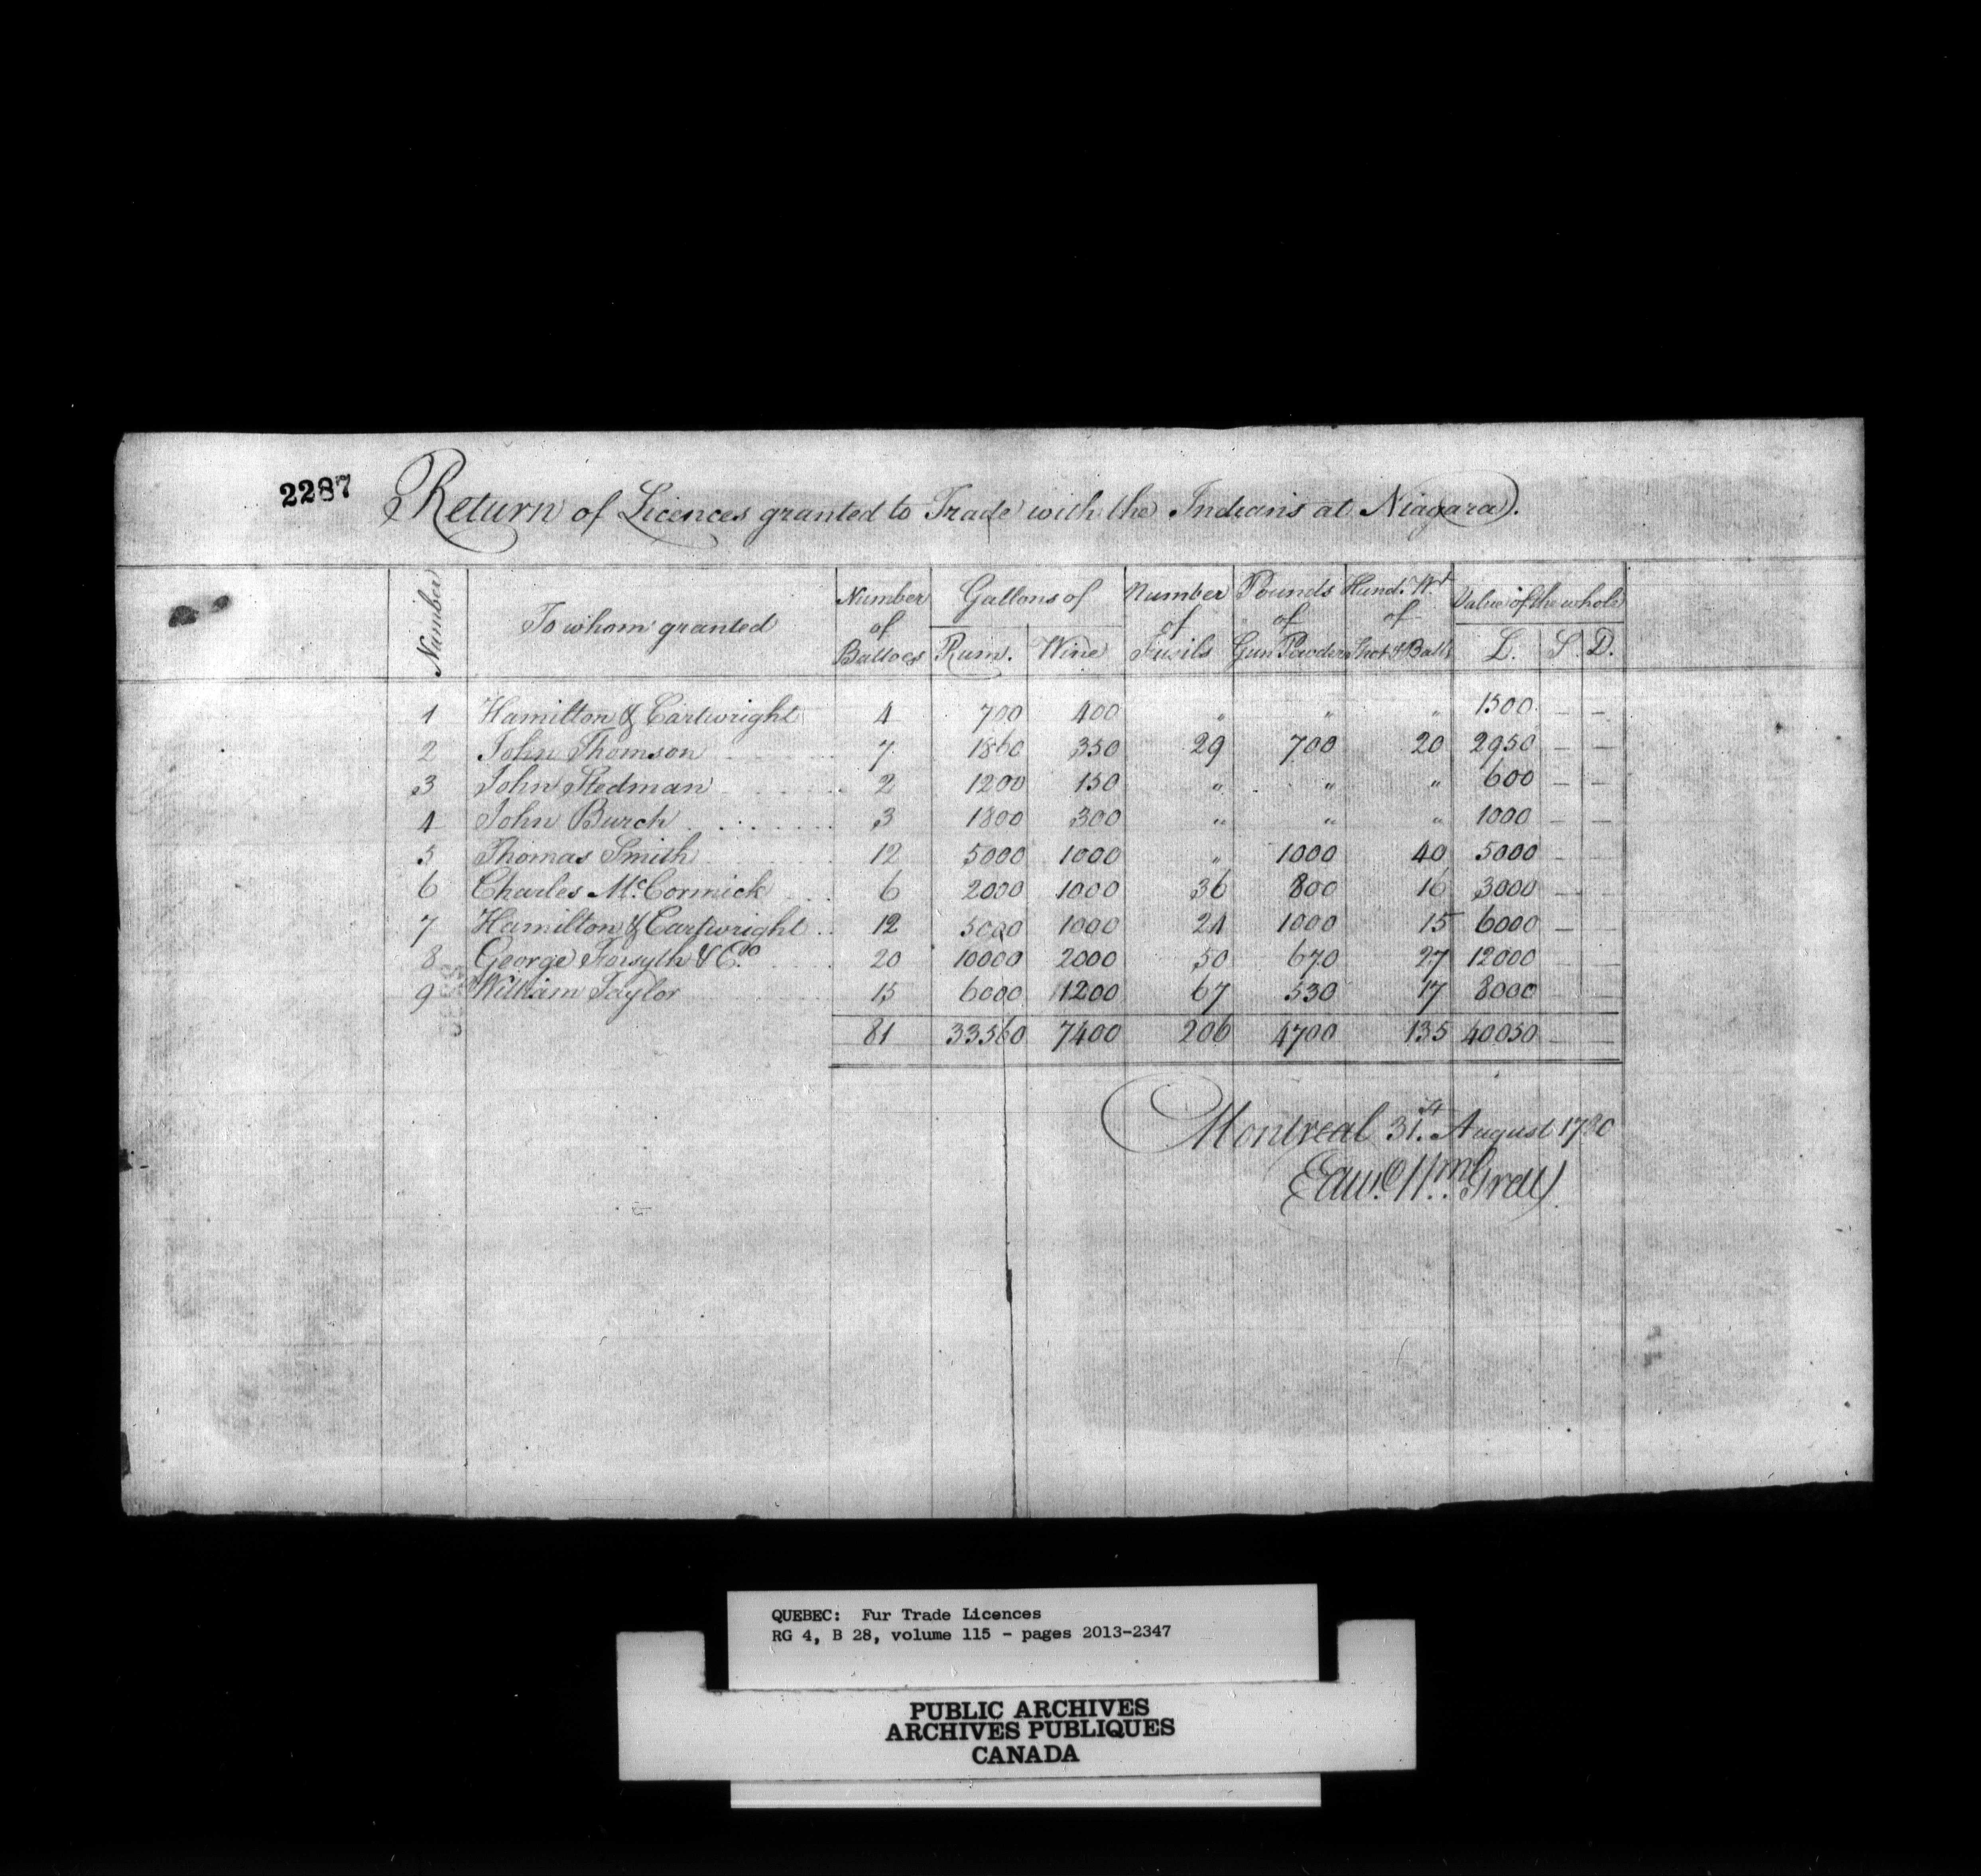 2287
Return of Licences granted to Trade with the Indians at Niagara.
Number | To whom granted | Number of Battoes | Gallons of Rum. | Wine | Number of Fusils | Pounds of Gun Powder | Hund. Wt of Shot & Balls | Value of the whole L. | S. | D.
1 Hamilton & Cartwright 4 700 400 " " " 1500 – –
2 John Thomson 7 1860 350 29 700 20 2950 – –
3 John Stedman 2 1200 150 " " " 600 – –
4 John Burch 3 1800 300 " " " 1000 – –
5 Thomas Smith 12 5000 1000 " 1000 40 5000 – –
6 Charles McCormick 6 2000 1000 36 800 16 3000 – –
7 Hamilton & Cartwright 12 5000 1000 24 1000 15 6000 – –
8 George Forsyth & Co. 20 10000 2000 50 670 27 12000 – –
9 William Taylor 15 6000 1200 67 530 17 8000 – –
81 33560 7400 206 4700 135 40050 – –
Montreal 31.st August 1780
Edwd. Wm. Gray
QUEBEC: Fur Trade Licences
RG 4, B 28, volume 115 - pages 2013-2347
PUBLIC ARCHIVES
ARCHIVES PUBLIQUES
CANADA